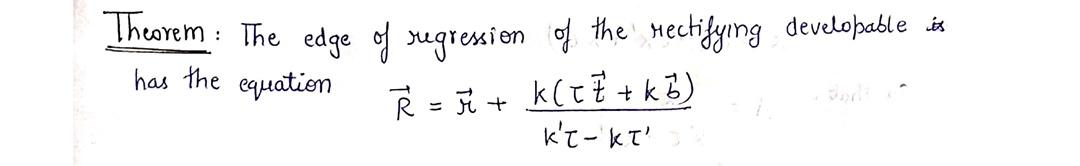 Theorem : The edge of regression of the rectifying developable is
has the equation
R⃗ = r⃗ + k(τt⃗ + kb⃗) / k'τ - kτ'